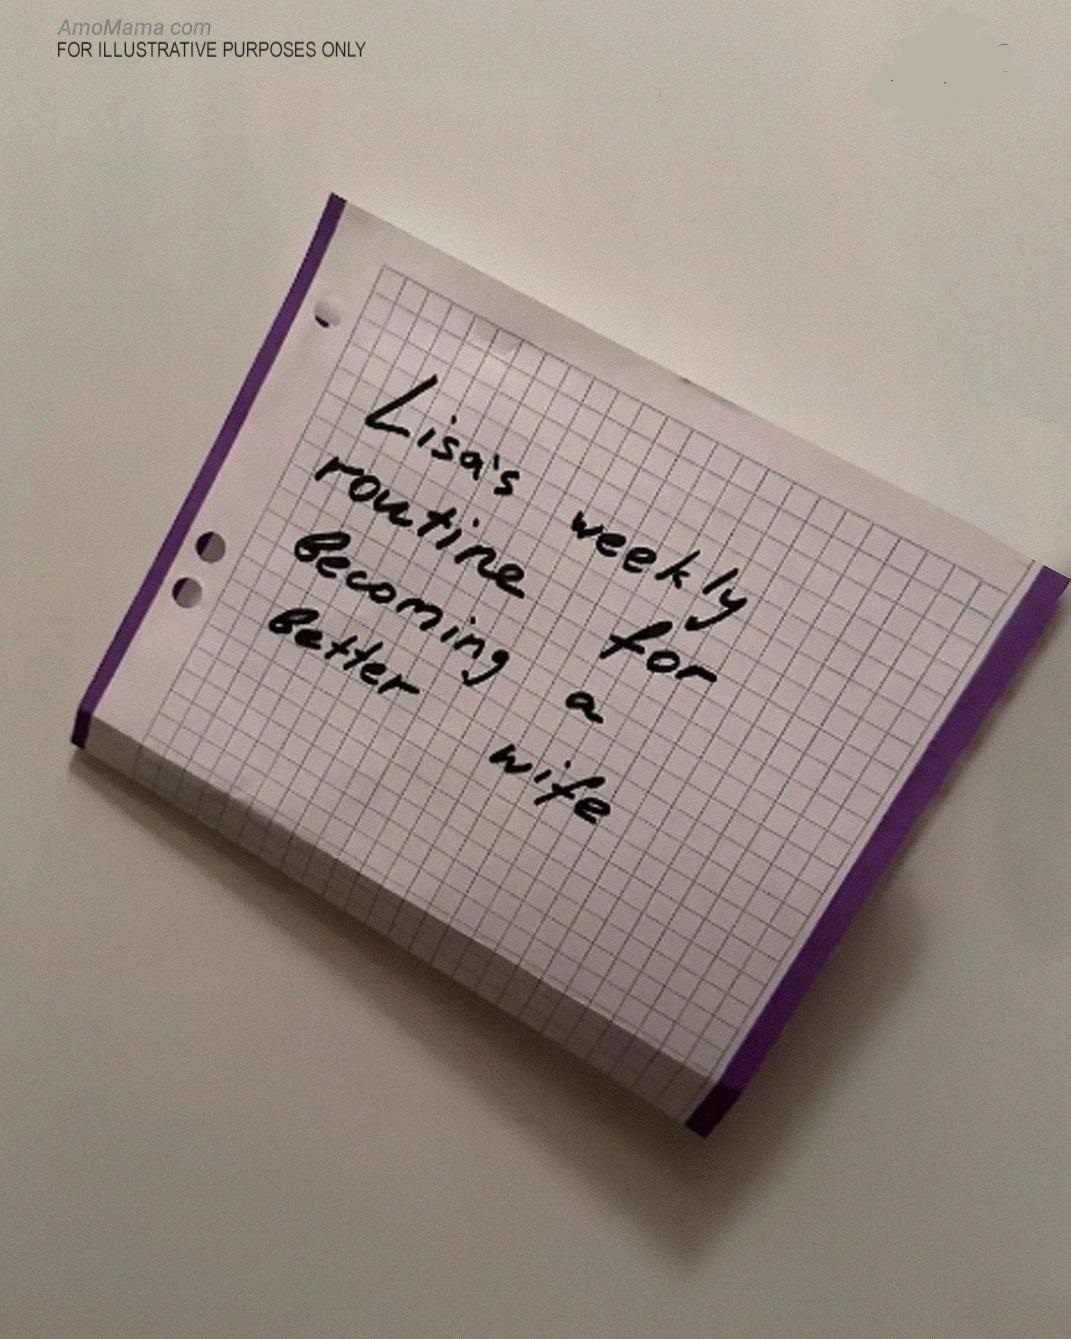 AmoMama com
FOR ILLUSTRATIVE PURPOSES ONLY
Lisa's weekly
routine for
becoming a
better wife